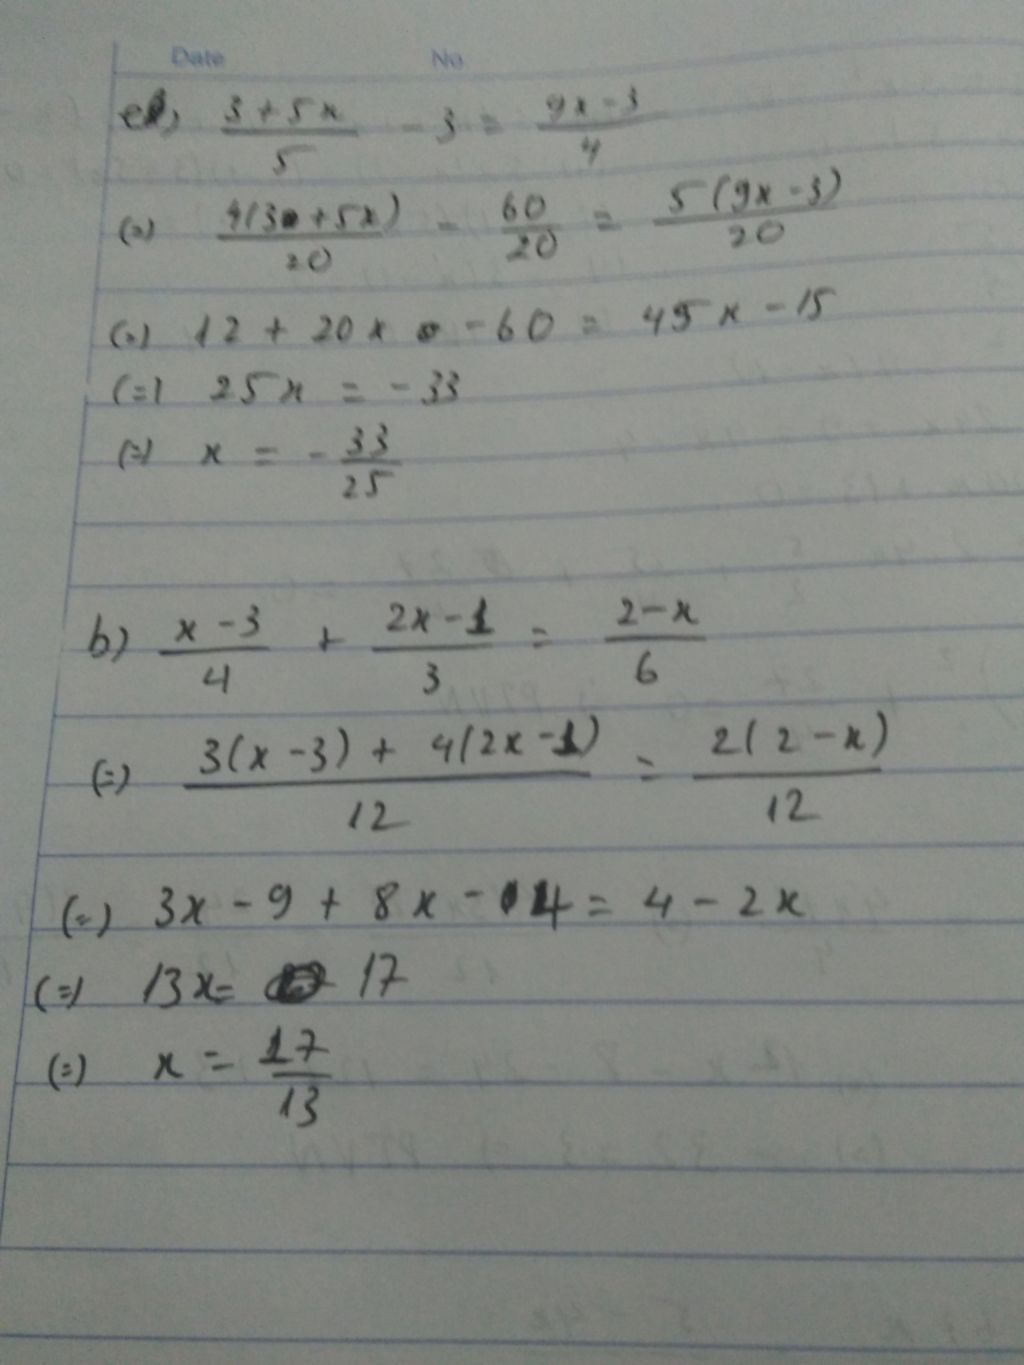 Date No
a) (3 + 5x)/5 - 3 = (9x - 3)/4
(=) 4(3 + 5x)/20 - 60/20 = 5(9x - 3)/20
(=) 12 + 20x - 60 = 45x - 15
(=) 25x = -33
(=) x = -33/25
b) (x - 3)/4 + (2x - 1)/3 = (2 - x)/6
(=) (3(x - 3) + 4(2x - 1))/12 = 2(2 - x)/12
(=) 3x - 9 + 8x - 4 = 4 - 2x
(=) 13x = 17
(=) x = 17/13